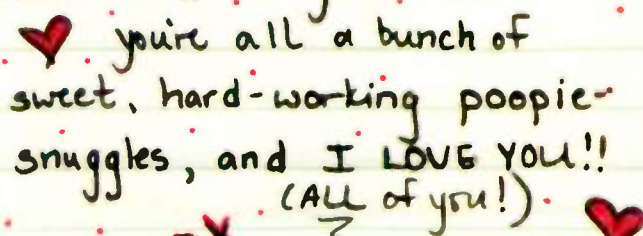 you're all a bunch of
sweet, hard-working poopie-
snuggles, and I LOVE YOU!!
(ALL of you!)